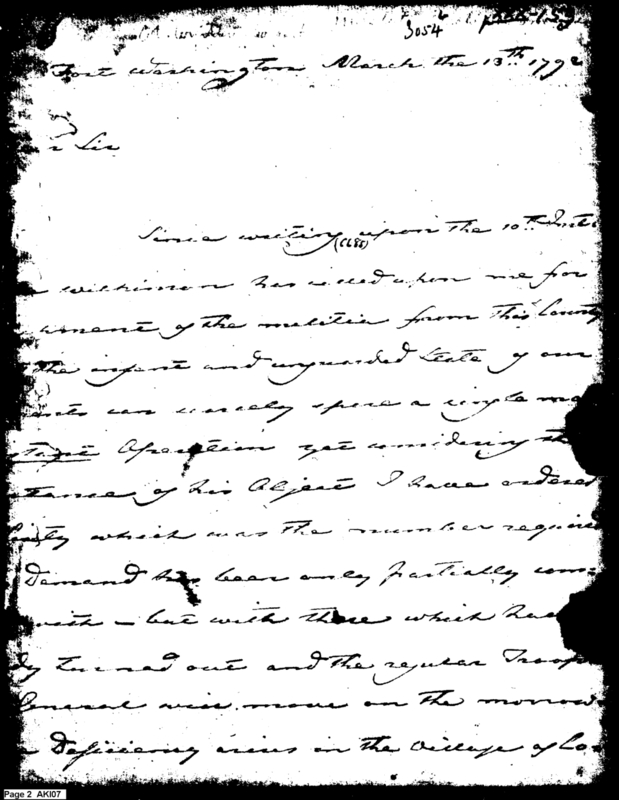 3054
Fort Washington March the 13th 1792
Sir
Since writing upon the 10th Inst
(C685)
Wilkinson has called upon me for
ument of the melitia from this County
the infent and unguarded State of our
ents can scarcely spare a single ma
Opperation yet considering the
tance of his Object I have ordered
which was the number require
Demand has been only partially com=
with – but with those which have
dy turned out and the regular Troops
General will move on the morrow
Deficiency arises in the Village of Co=
Page 2 AKI07